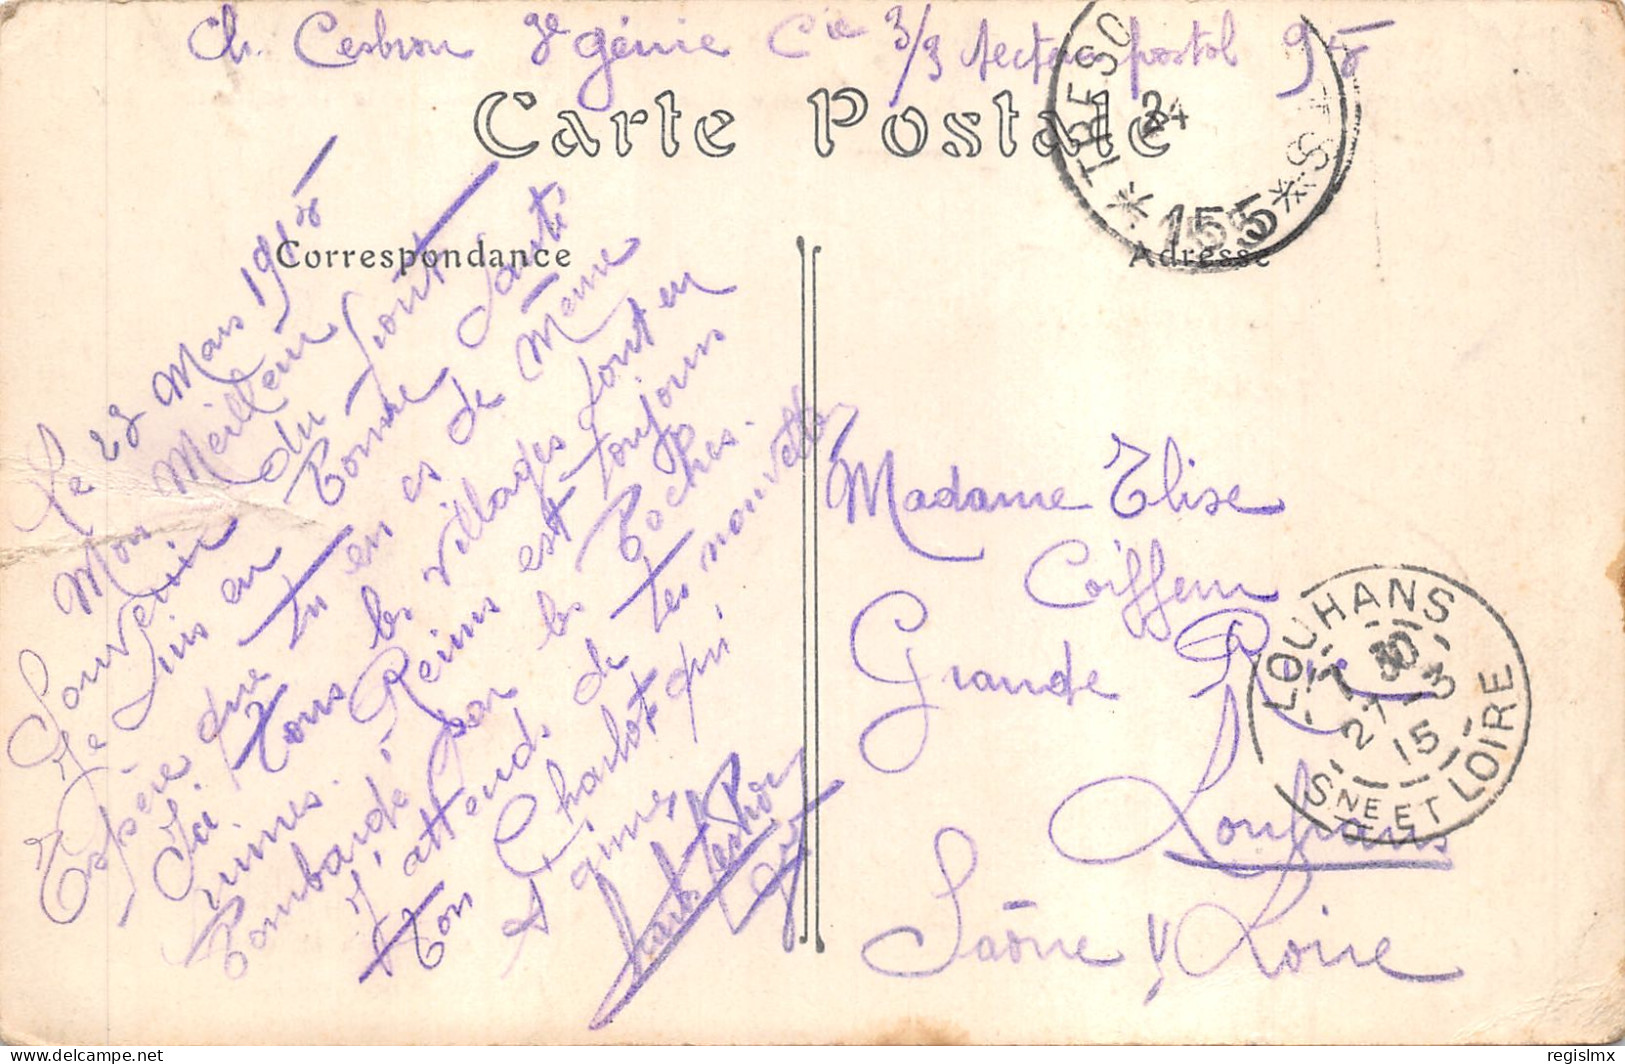 Ch. Cesbron 3e génie Cie 3/3 secteur postal 95
Carte Postale
Correspondance
Adresse
TRESO
24
S
* 155 *
Le 23 Mars 1915
Mon Meilleur
Souvenir du front
Je suis en bonne santé
Espère que tu en es de même
Ici tous les villages sont en
ruines. Reims est toujours
bombardé par les boches.
J'attends de tes nouvelles
Ton Charlot qui
t'aime
Madame Elise
Coiffeur
Grande Rue
Louhans
Saône & Loire
LOUHANS
7 30
27 3
15
SNE ET LOIRE
delcampe.net
regislmx